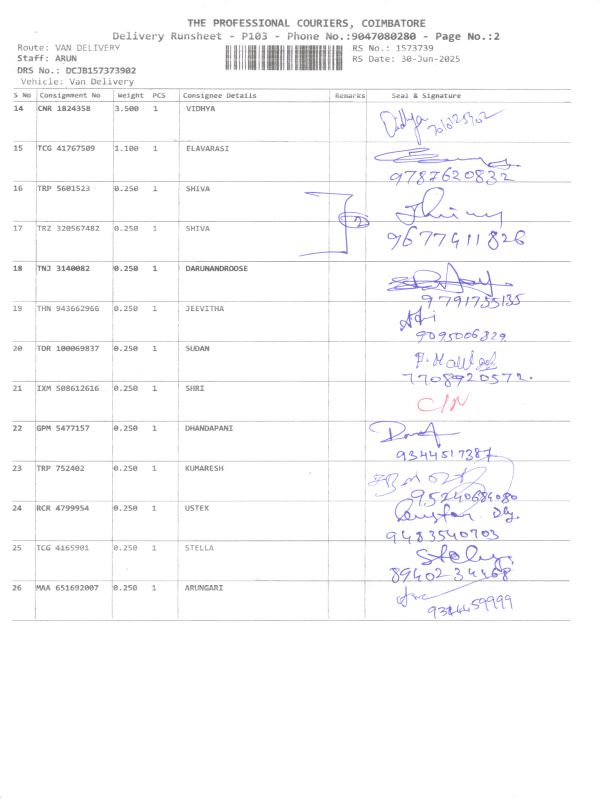 THE PROFESSIONAL COURIERS, COIMBATORE
Delivery Runsheet - P103 - Phone No.:9047080280 - Page No.:2
Route: VAN DELIVERY RS No.: 1573739
Staff: ARUN RS Date: 30-Jun-2025
DRS No.: DCJB157373902
Vehicle: Van Delivery
S No Consignment No Weight PCS Consignee Details Remarks Seal & Signature
14 CNR 1824358 3.500 1 VIDHYA Vidhya
15 TCG 41767509 1.100 1 ELAVARASI
9787620832
16 TRP 5601523 0.250 1 SHIVA
17 TRZ 320567482 0.250 1 SHIVA 2 9677411826
18 TNJ 3140082 0.250 1 DARUNANDROOSE
9791755135
19 THN 943662966 0.250 1 JEEVITHA
9095006329
20 TDR 100069837 0.250 1 SUDAN
7708920572.
21 IXM 508612616 0.250 1 SHRI C/N
22 GPM 5477157 0.250 1 DHANDAPANI
9344517387
23 TRP 752402 0.250 1 KUMARESH
95240684080
24 RCR 4799954 0.250 1 USTEX
9483540703
25 TCG 4165901 0.250 1 STELLA
8940234368
26 MAA 651692007 0.250 1 ARUNGARI
9344459999